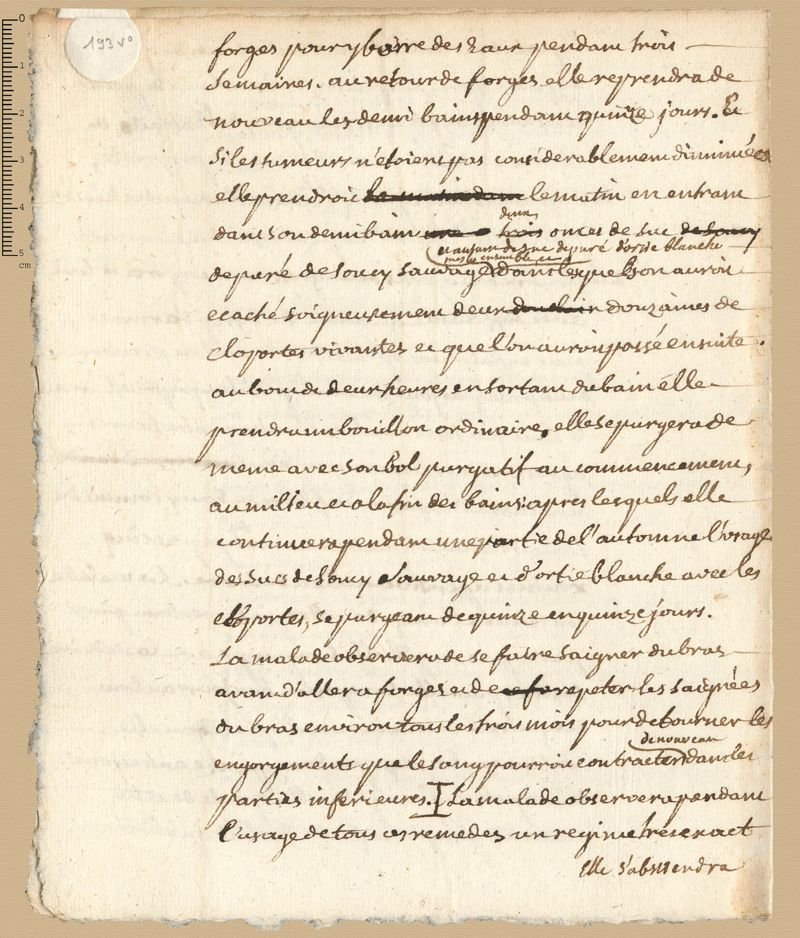 193 v°
forges pour y boire des Eaux pendant trois
semaines. au retour de forges elle reprendra de
nouveau les demi bains pendant quinze jours. Et
si les tumeurs n'etoient pas considerablement diminuées
elle prendroit le matin en entrant
deux
dans son demi bain trois onces de suc de soucy
et autant de suc depuré d'ortie blanche
mesle ensemble, et
depuré de soucy sauvage dans lesquels on auroit
ecaché soigneusement deux douzaines de
cloportes vivantes et que l'on auroit passé ensuite.
au bout de deux heures en sortant du bain elle
prendra un bouillon ordinaire. elle se purgera de
meme avec son bol purgatif au commencement,
au milieu et a la fin des bains: apres lesquels elle
continuera pendant une partie de l'automne l'usage
des sucs de soucy sauvage et d'ortie blanche avec les
cloportes, se purgeant de quinze en quinze jours.
La malade observera de se faire saigner du bras
avant d'aller a forges et de repeter les saignées
du bras environ tous les trois mois pour detourner les
de nouveau
engorgements que le sang pourroit contracter dans les
parties inferieures. I La malade observera pendant
l'usage de tous ces remedes un regime tres exact
Elle s'abstiendra
0
1
2
3
4
5
cm